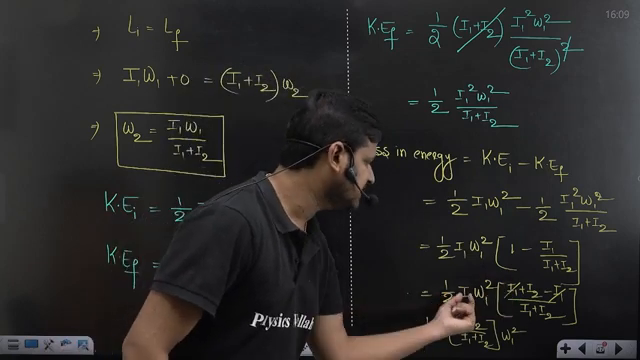 16:09
⇒ L₁ = L_f
⇒ I₁ω₁ + 0 = (I₁+I₂)ω₂
⇒ ω₂ = I₁ω₁ / (I₁+I₂)
K·Eᵢ = 1/2
K·E_f =
K·E_f = 1/2 (I₁+I₂) I₁²ω₁² / (I₁+I₂)²
= 1/2 I₁²ω₁² / (I₁+I₂)
ss in energy = K·Eᵢ − K·E_f
= 1/2 I₁ω₁² − 1/2 I₁²ω₁² / (I₁+I₂)
= 1/2 I₁ω₁² [1 − I₁/(I₁+I₂)]
= 1/2 I₁ω₁² [(I₁+I₂−I₁)/(I₁+I₂)]
/(I₁+I₂)] ω₁²
Physics Wallah